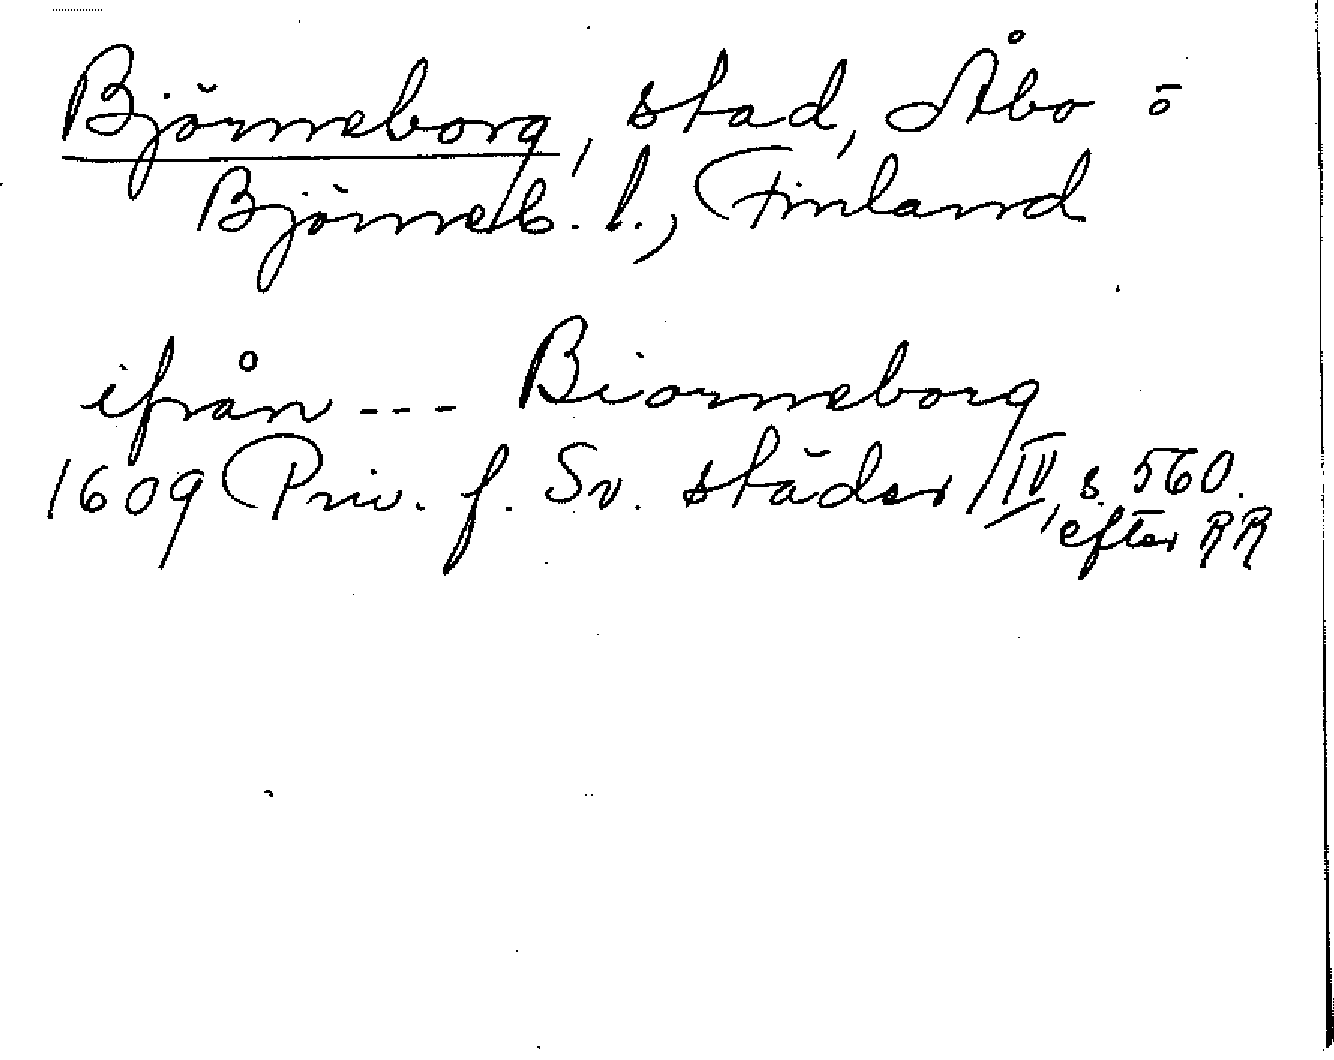 Björneborg, stad, Åbo o
Björneb. l., Finland
ifrån --- Biorneborg
1609 Priv. f. Sv. städer IV, s. 560.
efter RR